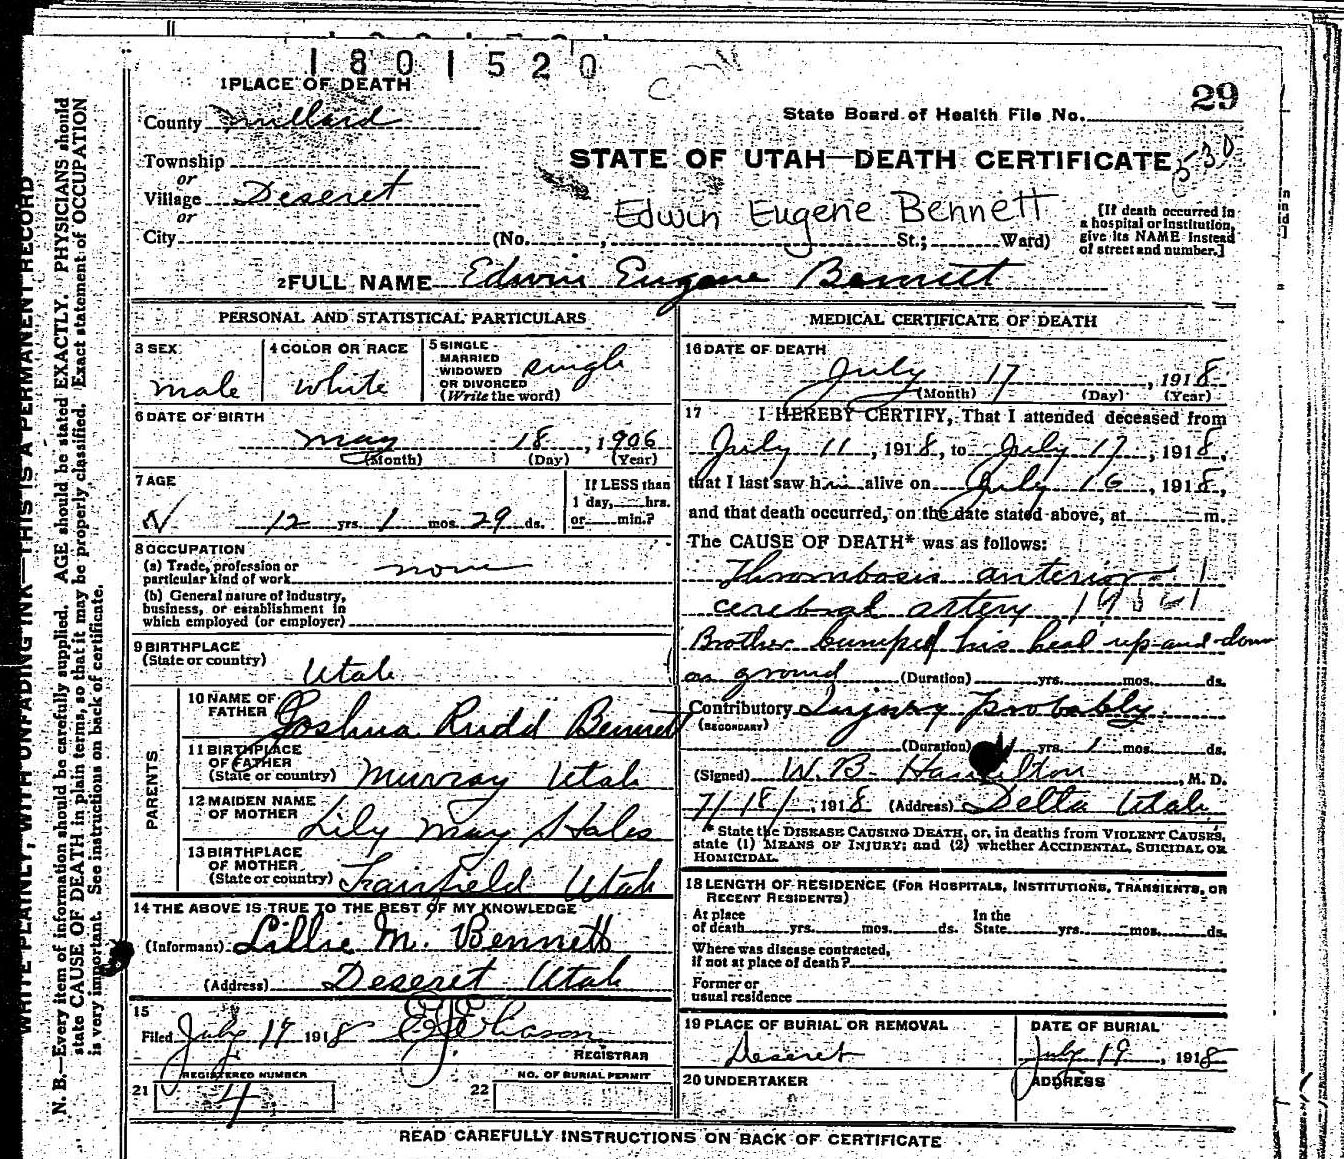 1801520
29
1 PLACE OF DEATH
State Board of Health File No.
County Millard
STATE OF UTAH—DEATH CERTIFICATE 530
Township
or
Village Deseret
or
Edwin Eugene Bennett
City (No. , St.; Ward)
[If death occurred in
a hospital or institution,
give its NAME instead
of street and number.]
2 FULL NAME Edwin Eugene Bennett
PERSONAL AND STATISTICAL PARTICULARS
3 SEX
male
4 COLOR OR RACE
white
5 SINGLE
MARRIED
WIDOWED
OR DIVORCED
(Write the word)
single
6 DATE OF BIRTH
May 18, 1906
(Month) (Day) (Year)
7 AGE
12 yrs. 1 mos. 29 ds.
If LESS than
1 day, hrs.
or min.?
8 OCCUPATION
(a) Trade, profession or
particular kind of work none
(b) General nature of industry,
business, or establishment in
which employed (or employer)
9 BIRTHPLACE
(State or country)
Utah
PARENTS
10 NAME OF
FATHER Joshua Rudd Bennett
11 BIRTHPLACE
OF FATHER
(State or country) Murray Utah
12 MAIDEN NAME
OF MOTHER Lily May Hales
13 BIRTHPLACE
OF MOTHER
(State or country) Fairfield Utah
14 THE ABOVE IS TRUE TO THE BEST OF MY KNOWLEDGE
(Informant) Lillie M. Bennett
(Address) Deseret Utah
15
Filed July 19 1918
REGISTRAR
REGISTERED NUMBER
21 4
NO. OF BURIAL PERMIT
22
MEDICAL CERTIFICATE OF DEATH
16 DATE OF DEATH
July 17, 1918
(Month) (Day) (Year)
17 I HEREBY CERTIFY, That I attended deceased from
July 11, 1918, to July 17, 1918,
that I last saw him alive on July 16, 1918,
and that death occurred, on the date stated above, at m.
The CAUSE OF DEATH* was as follows:
Thrombosis anterior
cerebral artery
Brother bumped his head up and down
on ground (Duration) yrs. mos. ds.
Contributory Injury Probably
(SECONDARY)
(Duration) yrs. 1 mos. ds.
(Signed) W. B. Hamilton, M. D.
7/18/, 1918 (Address) Delta Utah
* State the DISEASE CAUSING DEATH, or, in deaths from VIOLENT CAUSES,
state (1) MEANS OF INJURY; and (2) whether ACCIDENTAL, SUICIDAL OR
HOMICIDAL.
18 LENGTH OF RESIDENCE (FOR HOSPITALS, INSTITUTIONS, TRANSIENTS, OR
RECENT RESIDENTS)
At place
of death yrs. mos. ds.
In the
State yrs. mos. ds.
Where was disease contracted,
if not at place of death?
Former or
usual residence
19 PLACE OF BURIAL OR REMOVAL
Deseret
DATE OF BURIAL
July 19, 1918
20 UNDERTAKER
ADDRESS
READ CAREFULLY INSTRUCTIONS ON BACK OF CERTIFICATE
WRITE PLAINLY, WITH UNFADING INK—THIS IS A PERMANENT RECORD
N. B.—Every item of information should be carefully supplied. AGE should be stated EXACTLY. PHYSICIANS should
state CAUSE OF DEATH in plain terms, so that it may be properly classified. Exact statement of OCCUPATION
is very important. See instructions on back of certificate.